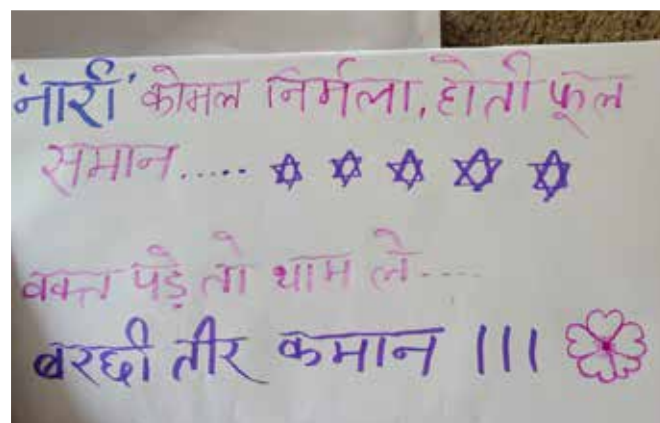 'नारी' कोमल निर्मला, होती फूल
समान.....
वक्त पड़े तो थाम ले....
बरछी तीर कमान ।।।